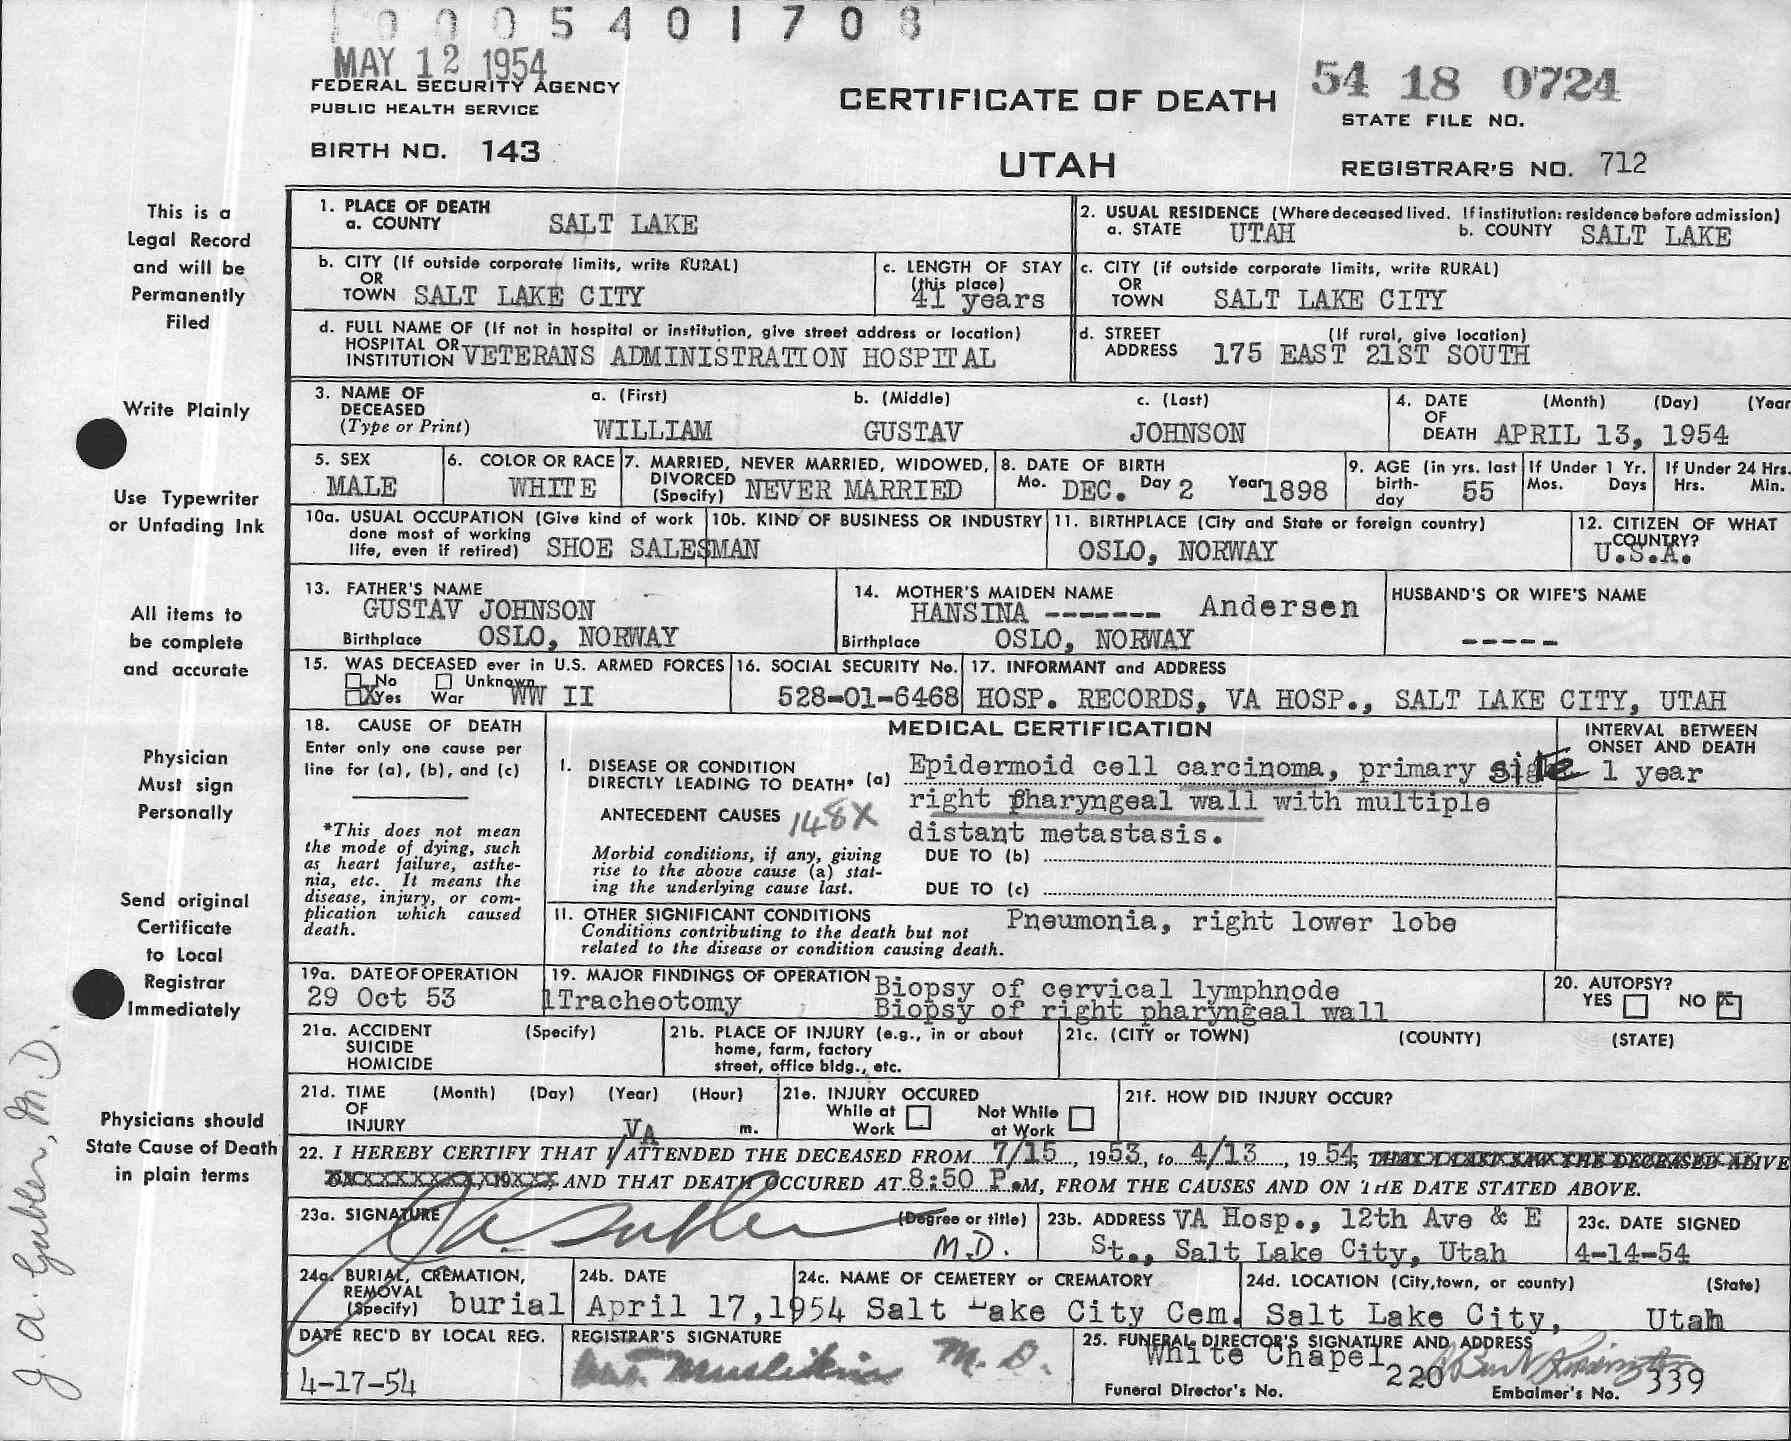 0005401708
MAY 12 1954
FEDERAL SECURITY AGENCY
PUBLIC HEALTH SERVICE
BIRTH NO. 143
CERTIFICATE OF DEATH
UTAH
54 18 0724
STATE FILE NO.
REGISTRAR'S NO. 712
This is a
Legal Record
and will be
Permanently
Filed
Write Plainly
Use Typewriter
or Unfading Ink
All items to
be complete
and accurate
Physician
Must sign
Personally
Send original
Certificate
to Local
Registrar
Immediately
Physicians should
State Cause of Death
in plain terms
J. A. Gubler, M.D.
1. PLACE OF DEATH
a. COUNTY SALT LAKE
2. USUAL RESIDENCE (Where deceased lived. If institution: residence before admission)
a. STATE UTAH b. COUNTY SALT LAKE
b. CITY (If outside corporate limits, write RURAL)
OR
TOWN SALT LAKE CITY
c. LENGTH OF STAY
(this place)
41 years
c. CITY (if outside corporate limits, write RURAL)
OR
TOWN SALT LAKE CITY
d. FULL NAME OF (If not in hospital or institution, give street address or location)
HOSPITAL OR
INSTITUTION VETERANS ADMINISTRATION HOSPITAL
d. STREET (If rural, give location)
ADDRESS 175 EAST 21ST SOUTH
3. NAME OF
DECEASED
(Type or Print)
a. (First) b. (Middle) c. (Last)
WILLIAM GUSTAV JOHNSON
4. DATE (Month) (Day) (Year
OF
DEATH APRIL 13, 1954
5. SEX
MALE
6. COLOR OR RACE
WHITE
7. MARRIED, NEVER MARRIED, WIDOWED,
DIVORCED
(Specify) NEVER MARRIED
8. DATE OF BIRTH
Mo. DEC. Day 2 Year 1898
9. AGE (in yrs. last
birth-
day 55
If Under 1 Yr.
Mos. Days
If Under 24 Hrs.
Hrs. Min.
10a. USUAL OCCUPATION (Give kind of work
done most of working
life, even if retired) SHOE SALESMAN
10b. KIND OF BUSINESS OR INDUSTRY
11. BIRTHPLACE (City and State or foreign country)
OSLO, NORWAY
12. CITIZEN OF WHAT
COUNTRY?
U.S.A.
13. FATHER'S NAME
GUSTAV JOHNSON
Birthplace OSLO, NORWAY
14. MOTHER'S MAIDEN NAME
HANSINA ------- Andersen
Birthplace OSLO, NORWAY
HUSBAND'S OR WIFE'S NAME
-----
15. WAS DECEASED ever in U.S. ARMED FORCES
No Unknown
X Yes War WW II
16. SOCIAL SECURITY No.
528-01-6468
17. INFORMANT and ADDRESS
HOSP. RECORDS, VA HOSP., SALT LAKE CITY, UTAH
18. CAUSE OF DEATH
Enter only one cause per
line for (a), (b), and (c)
*This does not mean
the mode of dying, such
as heart failure, asthe-
nia, etc. It means the
disease, injury, or com-
plication which caused
death.
MEDICAL CERTIFICATION
INTERVAL BETWEEN
ONSET AND DEATH
I. DISEASE OR CONDITION
DIRECTLY LEADING TO DEATH* (a) Epidermoid cell carcinoma, primary site 1 year
right pharyngeal wall with multiple
distant metastasis.
ANTECEDENT CAUSES 148X
Morbid conditions, if any, giving
rise to the above cause (a) stat-
ing the underlying cause last.
DUE TO (b)
DUE TO (c)
II. OTHER SIGNIFICANT CONDITIONS
Conditions contributing to the death but not
related to the disease or condition causing death.
Pneumonia, right lower lobe
19a. DATE OF OPERATION
29 Oct 53
19. MAJOR FINDINGS OF OPERATION Biopsy of cervical lymphnode
Tracheotomy Biopsy of right pharyngeal wall
20. AUTOPSY?
YES NO X
21a. ACCIDENT (Specify)
SUICIDE
HOMICIDE
21b. PLACE OF INJURY (e.g., in or about
home, farm, factory
street, office bldg., etc.
21c. (CITY or TOWN) (COUNTY) (STATE)
21d. TIME (Month) (Day) (Year) (Hour)
OF
INJURY m.
21e. INJURY OCCURED
While at Work Not While at Work
21f. HOW DID INJURY OCCUR?
VA
22. I HEREBY CERTIFY THAT I ATTENDED THE DECEASED FROM 7/15, 1953, to 4/13, 1954, THAT I LAST SAW THE DECEASED ALIVE
AND THAT DEATH OCCURED AT 8:50 P.M, FROM THE CAUSES AND ON THE DATE STATED ABOVE.
23a. SIGNATURE (Degree or title)
J A Gubler M.D.
23b. ADDRESS VA Hosp., 12th Ave & E
St., Salt Lake City, Utah
23c. DATE SIGNED
4-14-54
24a. BURIAL, CREMATION,
REMOVAL
(Specify) burial
24b. DATE
April 17, 1954
24c. NAME OF CEMETERY or CREMATORY
Salt Lake City Cem.
24d. LOCATION (City, town, or county) (State)
Salt Lake City, Utah
DATE REC'D BY LOCAL REG.
4-17-54
REGISTRAR'S SIGNATURE
M.D.
25. FUNERAL DIRECTOR'S SIGNATURE AND ADDRESS
White Chapel
Funeral Director's No. 220 Embalmer's No. 339